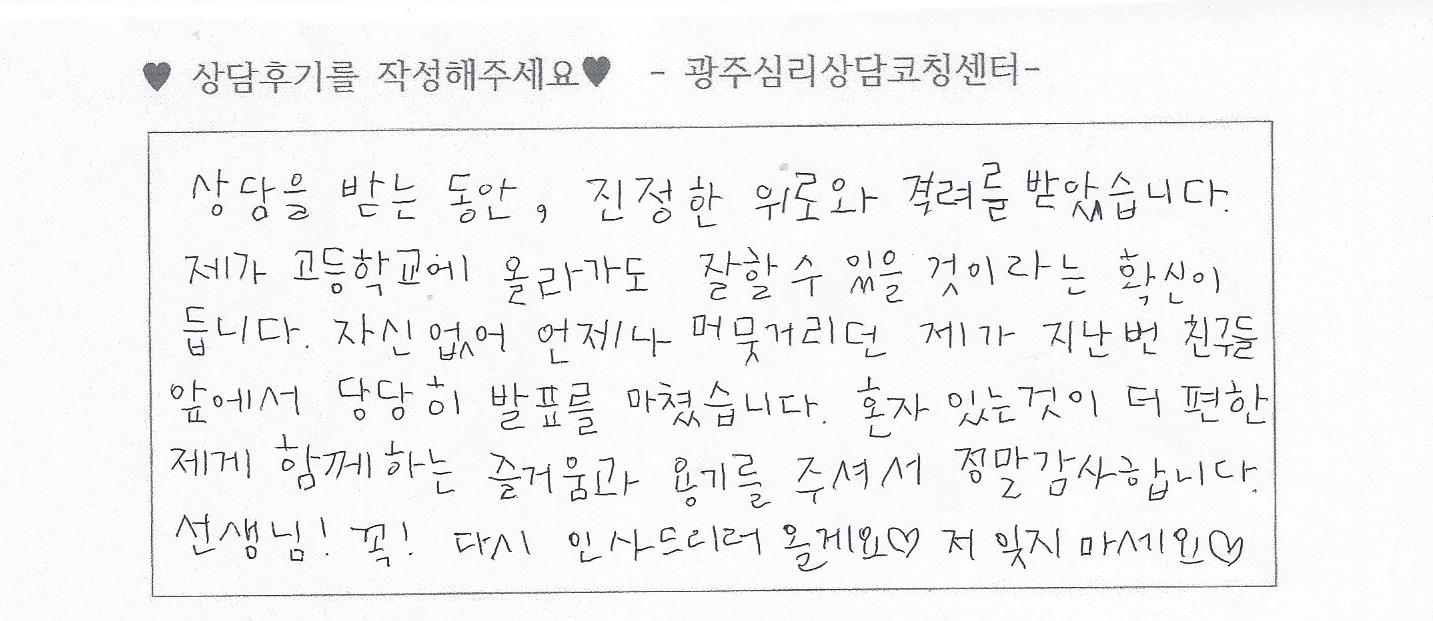 ♥ 상담후기를 작성해주세요♥ - 광주심리상담코칭센터-
상담을 받는 동안, 진정한 위로와 격려를 받았습니다.
제가 고등학교에 올라가도 잘할 수 있을 것이라는 확신이
듭니다. 자신없어 언제나 머뭇거리던 제가 지난번 친구들
앞에서 당당히 발표를 마쳤습니다. 혼자 있는것이 더 편한
제게 함께하는 즐거움과 용기를 주셔서 정말감사합니다.
선생님! 꼭! 다시 인사드리러 올게요♡ 저 잊지 마세요♡